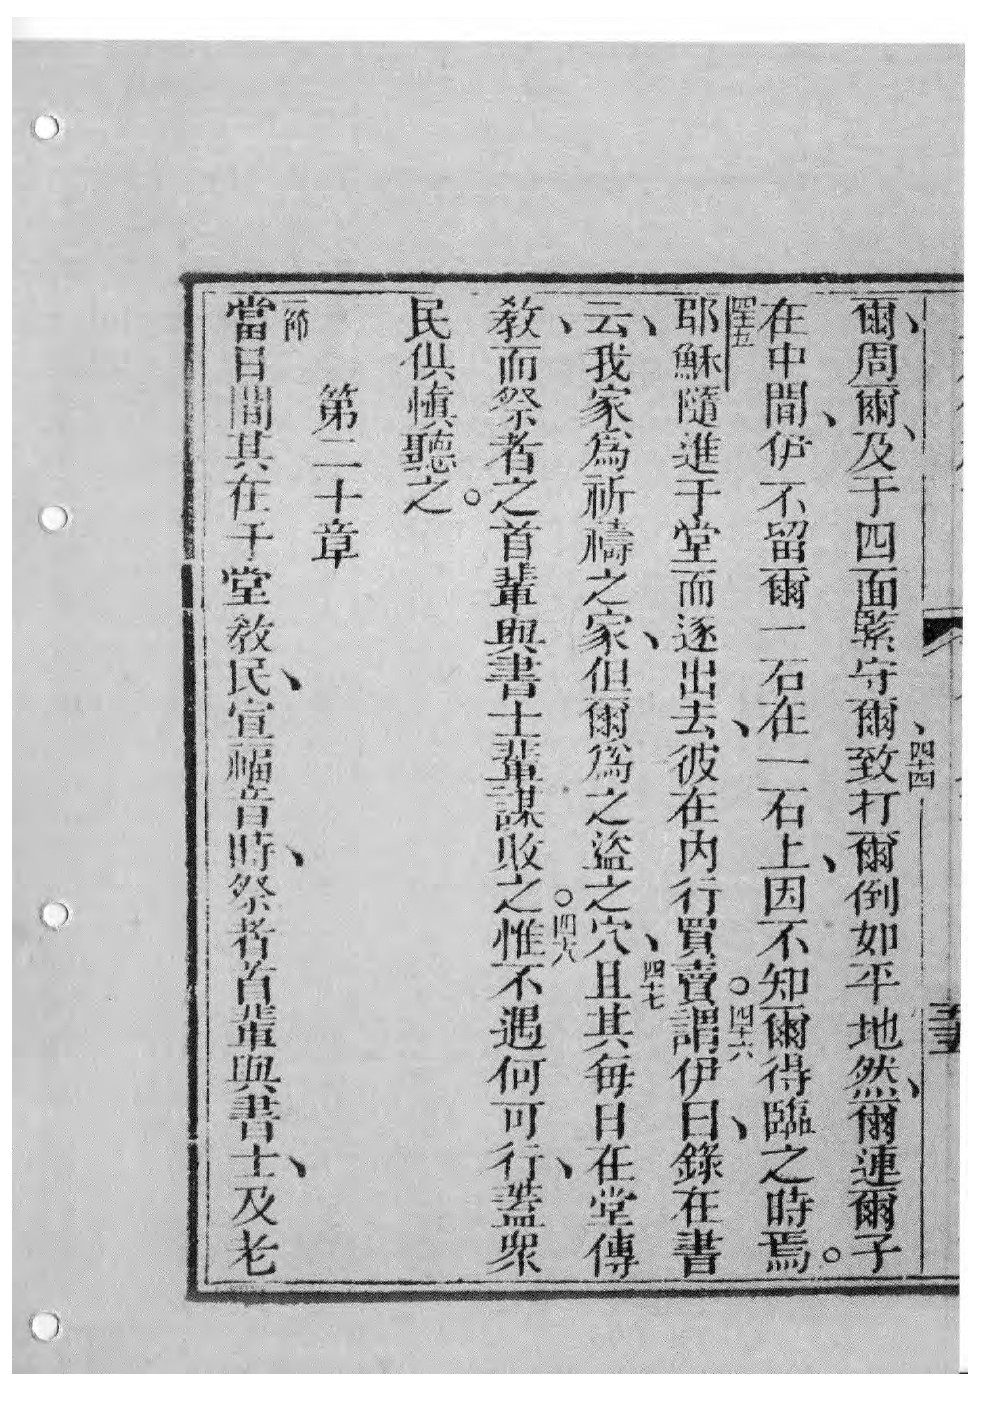 爾、周爾、及于四面緊守爾、四十四致打爾倒如平地然、爾連爾子
在中間、伊不留爾一石在一石上、因不知爾得臨之時焉。
四十五耶穌隨進于堂而逐出去、彼在内行買賣。四十六謂伊曰、錄在書
云、我家爲祈禱之家、但爾爲之盜之穴、四十七且其每日在堂傳
敎、而祭者之首輩與書士輩謀敗之。四十八惟不遇何可行、蓋衆
民俱愼聽之。
第二十章
一節當日間其在于堂敎民、宣福音時、祭者首輩與書士、及老